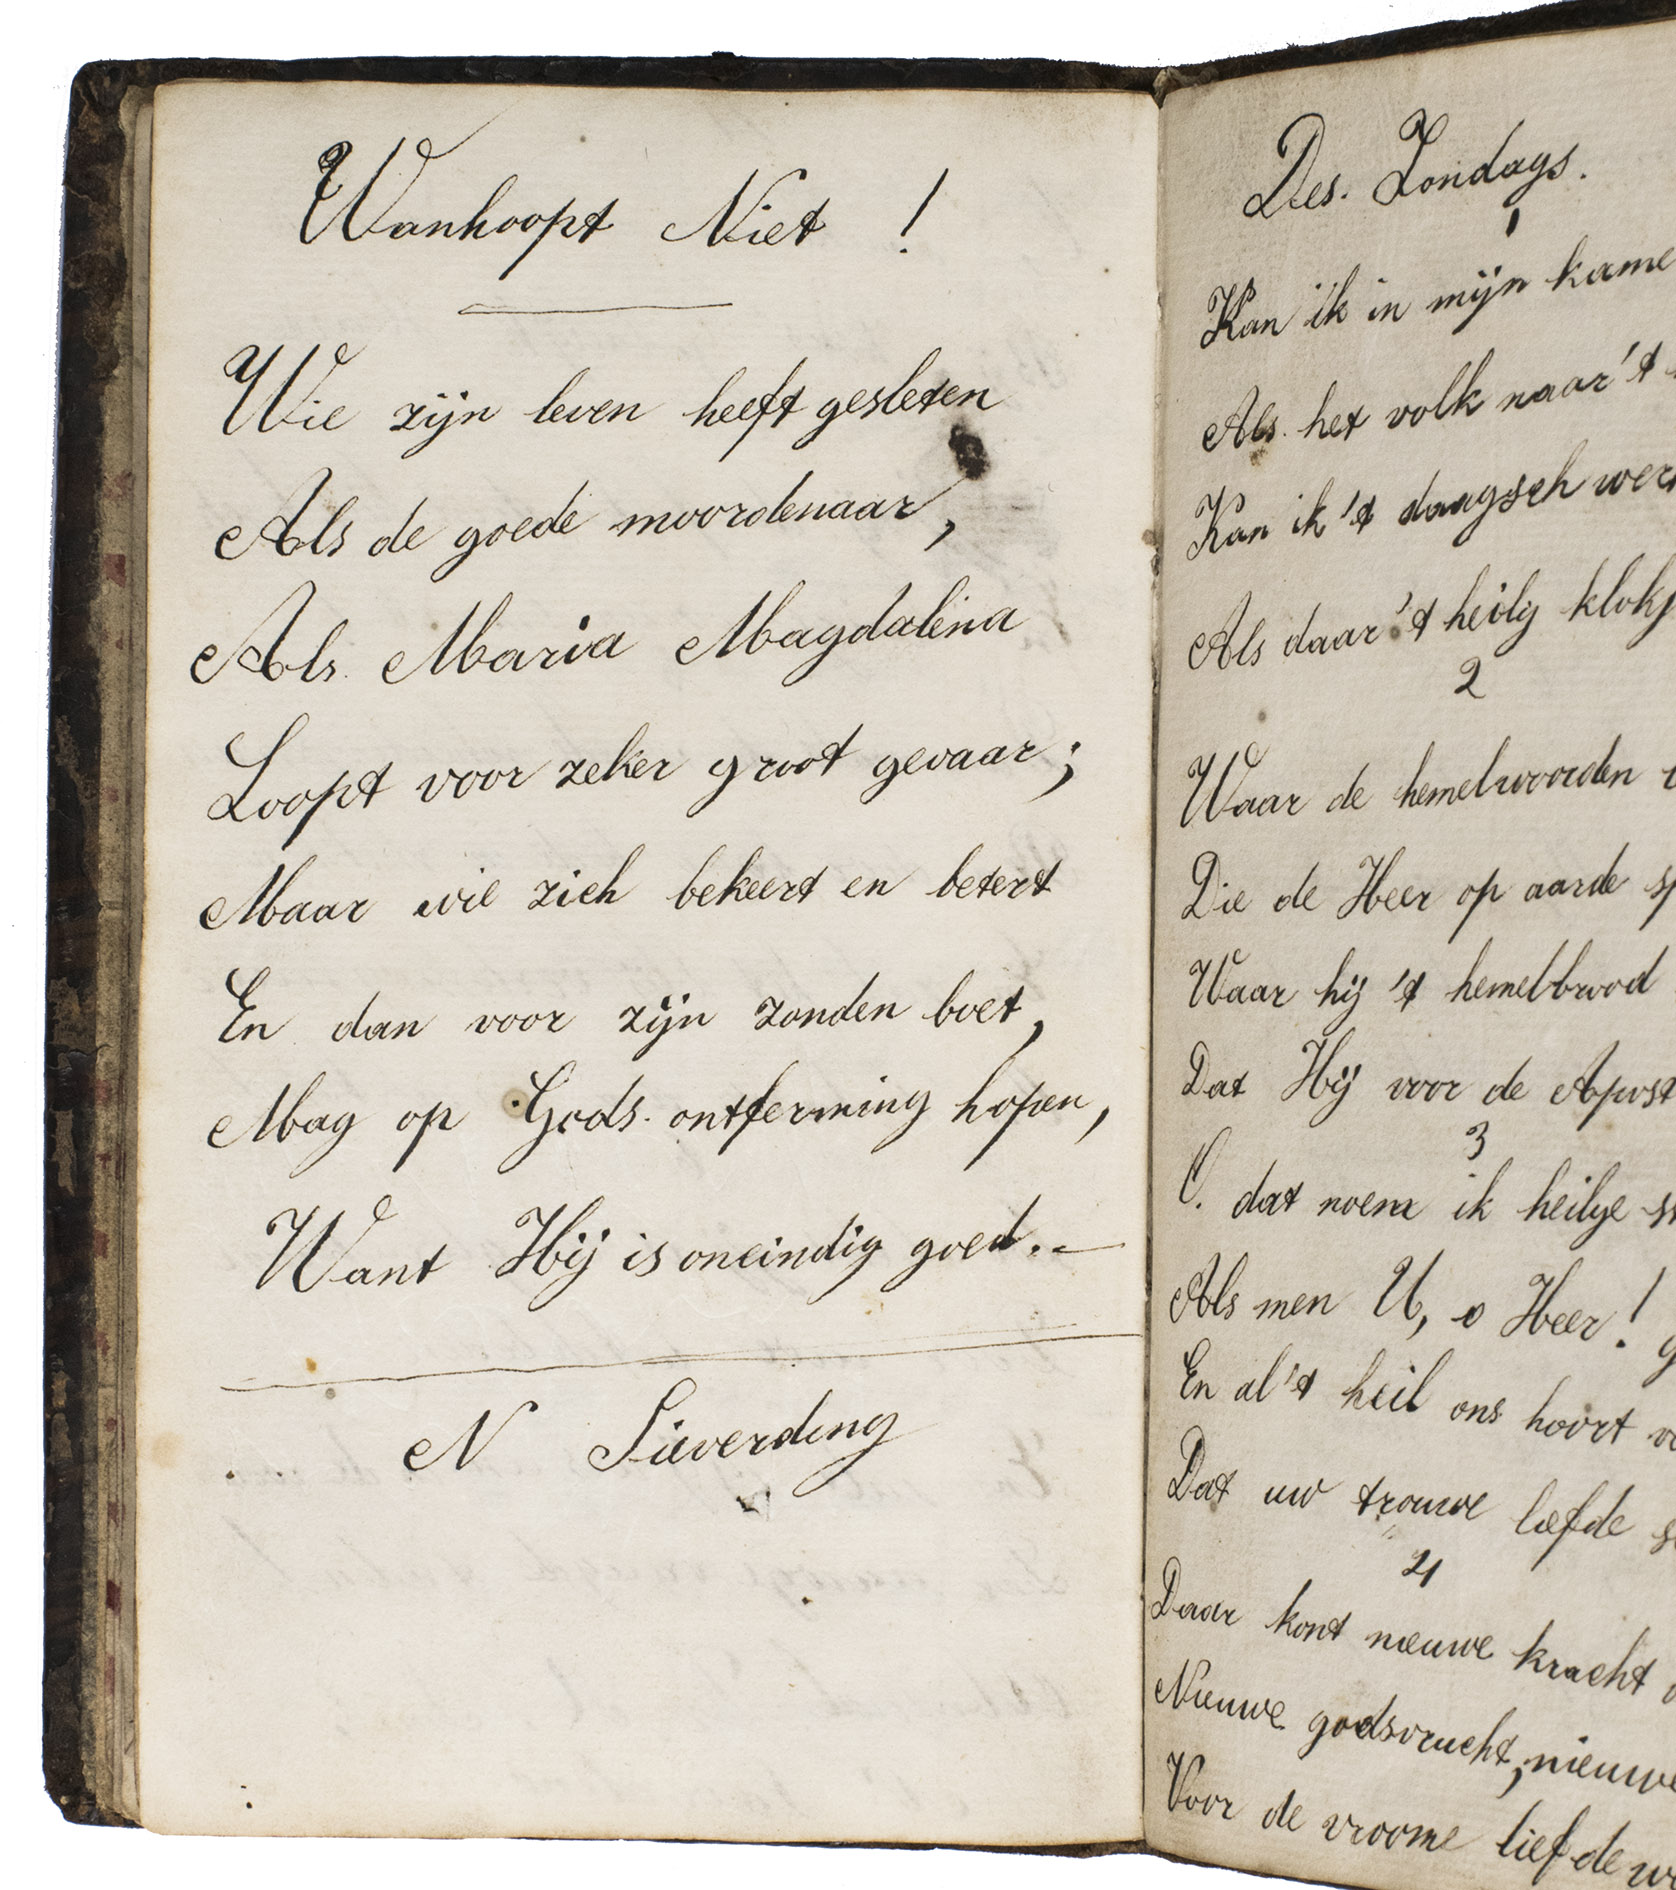 Wanhoopt Niet !
Wie zijn leven heeft gesleten
Als de goede moordenaar,
Als Maria Magdalena
Loopt voor zeker groot gevaar;
Maar wie zich bekeert en betert
En dan voor zijn zonden boet,
Mag op Gods ontferming hopen,
Want Hij is oneindig goed. -
N Sieverding
Des. Zondags.
1
Kan ik in mijn kame
Als het volk naar 't
Kan ik 't daagsch wer
Als daar 't heilig klokj
2
Waar de hemelwoorden
Die de Heer op aarde sp
Waar hij 't hemelbrood
Dat Hij voor de Apost
3
O. dat noem ik heilge
Als men U, o Heer! g
En al 't heil ons hoort
Dat uw trouwe liefde
4
Daar komt nieuwe kracht
Nieuwe godsvrucht, nieuwe
Voor de vroome liefde